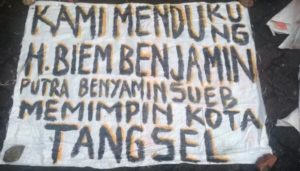 KAMI MENDUKUNG
H. BIEM BENJAMIN
PUTRA BENYAMIN SUEB
MEMIMPIN KOTA
TANGSEL